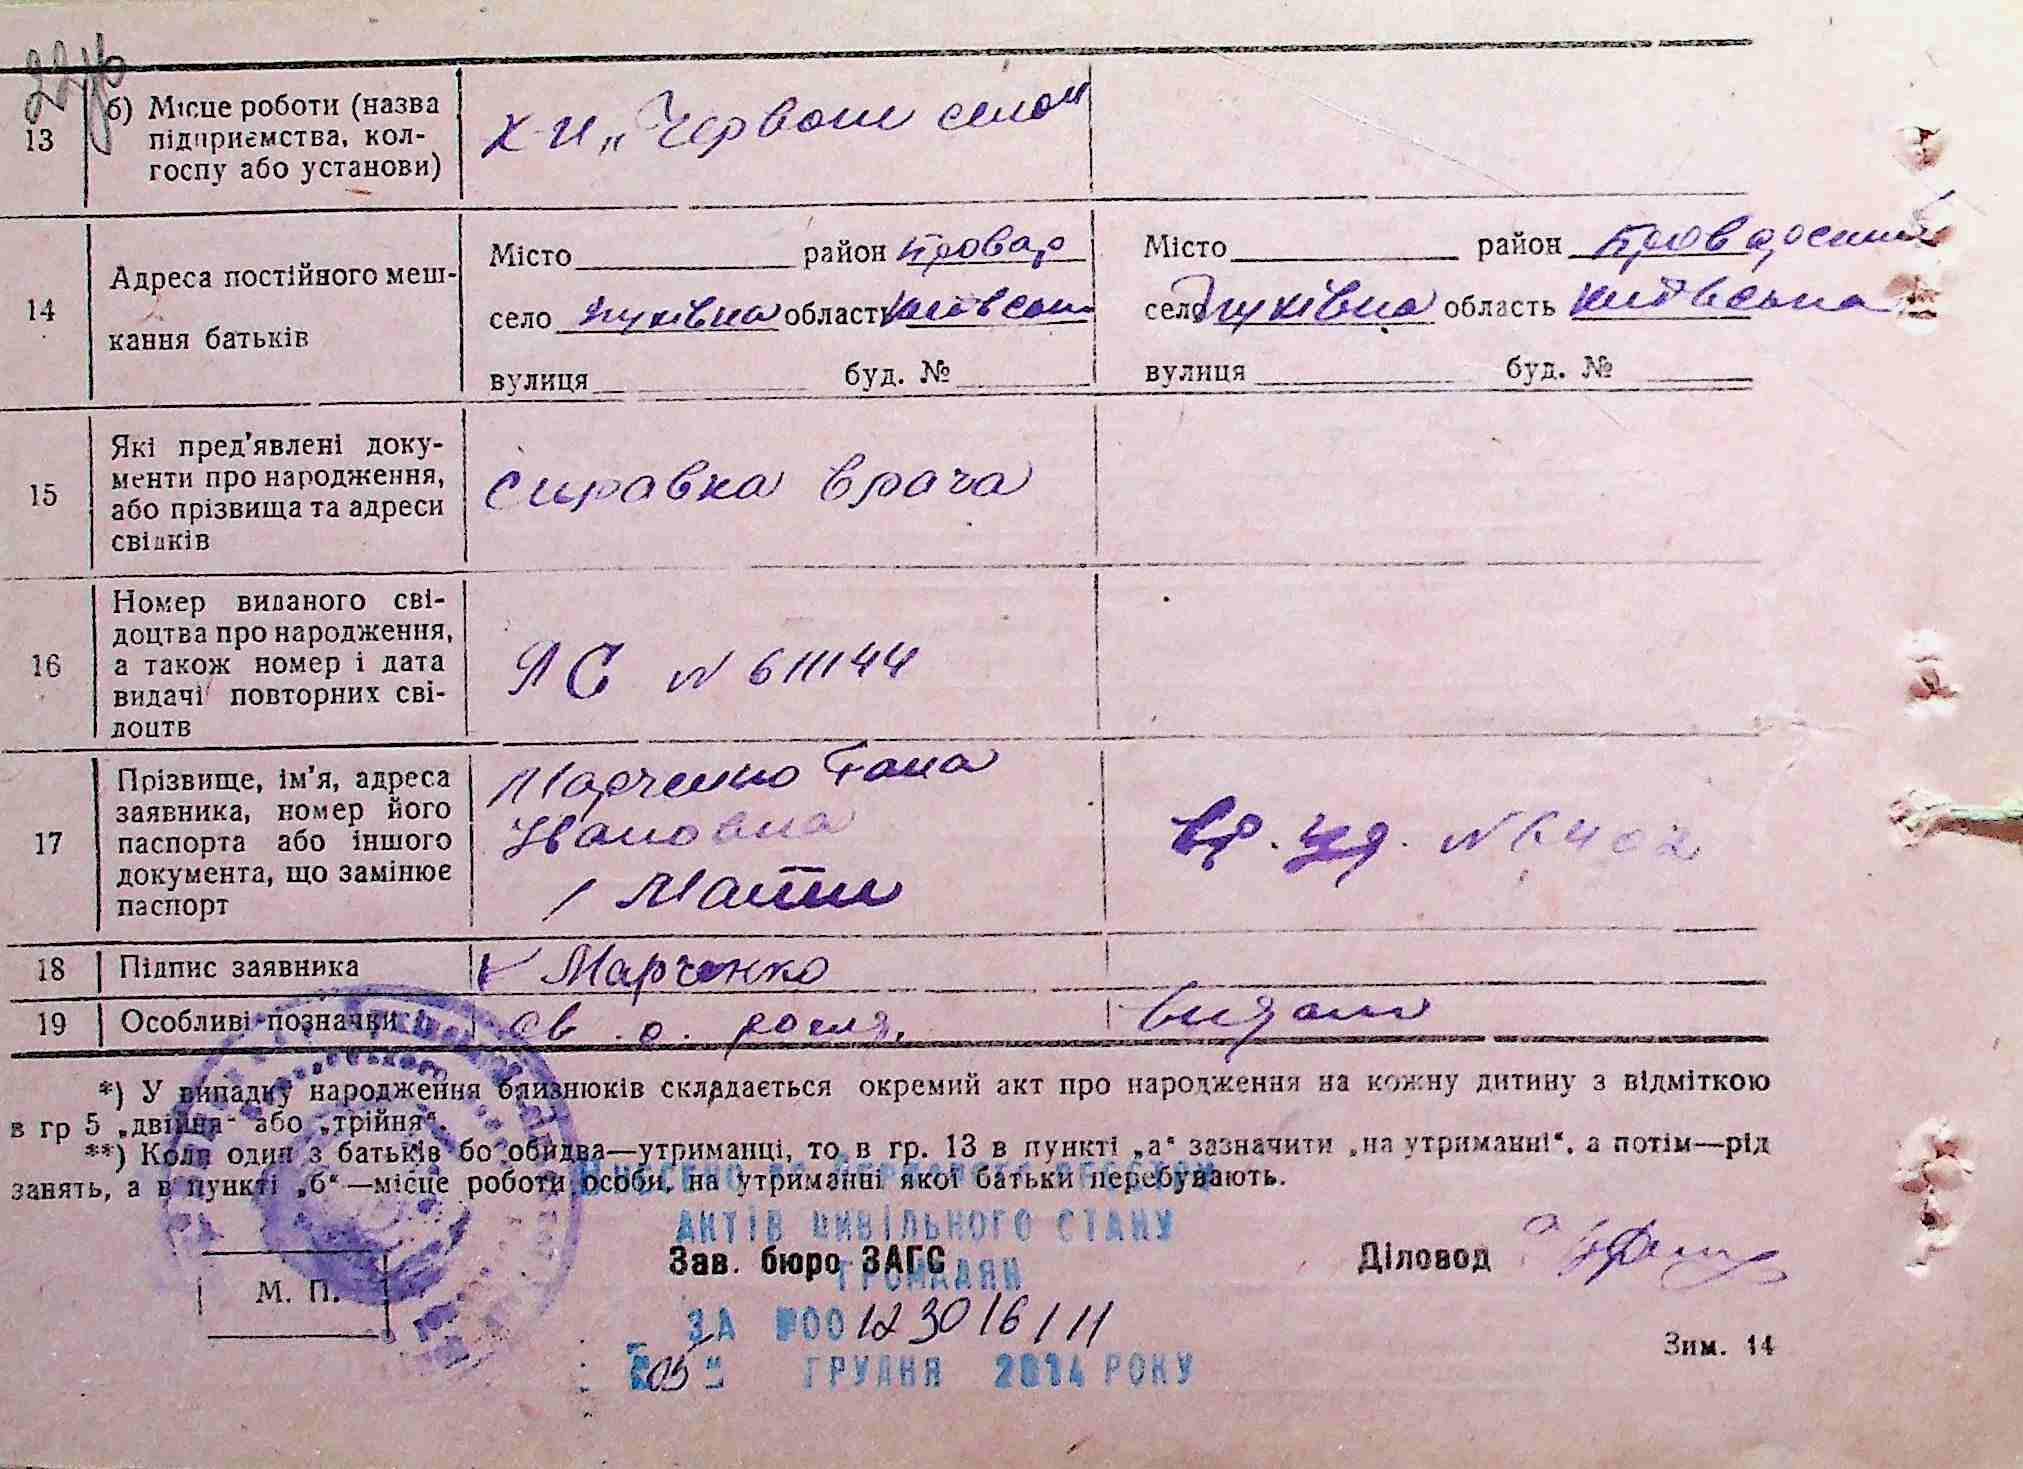 13
б) Місце роботи (назва
підприємства, кол-
госпу або установи)
К-п „Червоне село"
14
Адреса постійного меш-
кання батьків
Місто район Бровар
село область
вулиця буд. №
Місто район Броварський
село область Київська
вулиця буд. №
15
Які пред'явлені доку-
менти про народження,
або прізвища та адреси
свідків
Справка врача
16
Номер виданого сві-
доцтва про народження,
а також номер і дата
видачі повторних сві-
доцтв
ЯС № 611144
17
Прізвище, ім'я, адреса
заявника, номер його
паспорта або іншого
документа, що замінює
паспорт
Марченко Гана
Івановна
/ Мати
вр. уд. № 6402
18
Підпис заявника
Марченко
19
Особливі позначки
*) У випадку народження близнюків складається окремий акт про народження на кожну дитину з відміткою
в гр 5 „двійня" або „трійня".
**) Коли один з батьків бо обидва—утриманці, то в гр. 13 в пункті „а" зазначити „на утриманні", а потім—рід
занять, а в пункті „б"—місце роботи особи, на утриманні якої батьки перебувають.
ВНЕСЕНО ДО ДЕРЖАВНОГО РЕЄСТРУ
АКТІВ ЦИВІЛЬНОГО СТАНУ
ГРОМАДЯН
ЗА №00123016111
"05" ГРУДНЯ 2014 РОКУ
Зав. бюро ЗАГС
Діловод
М. П.
Зим. 14